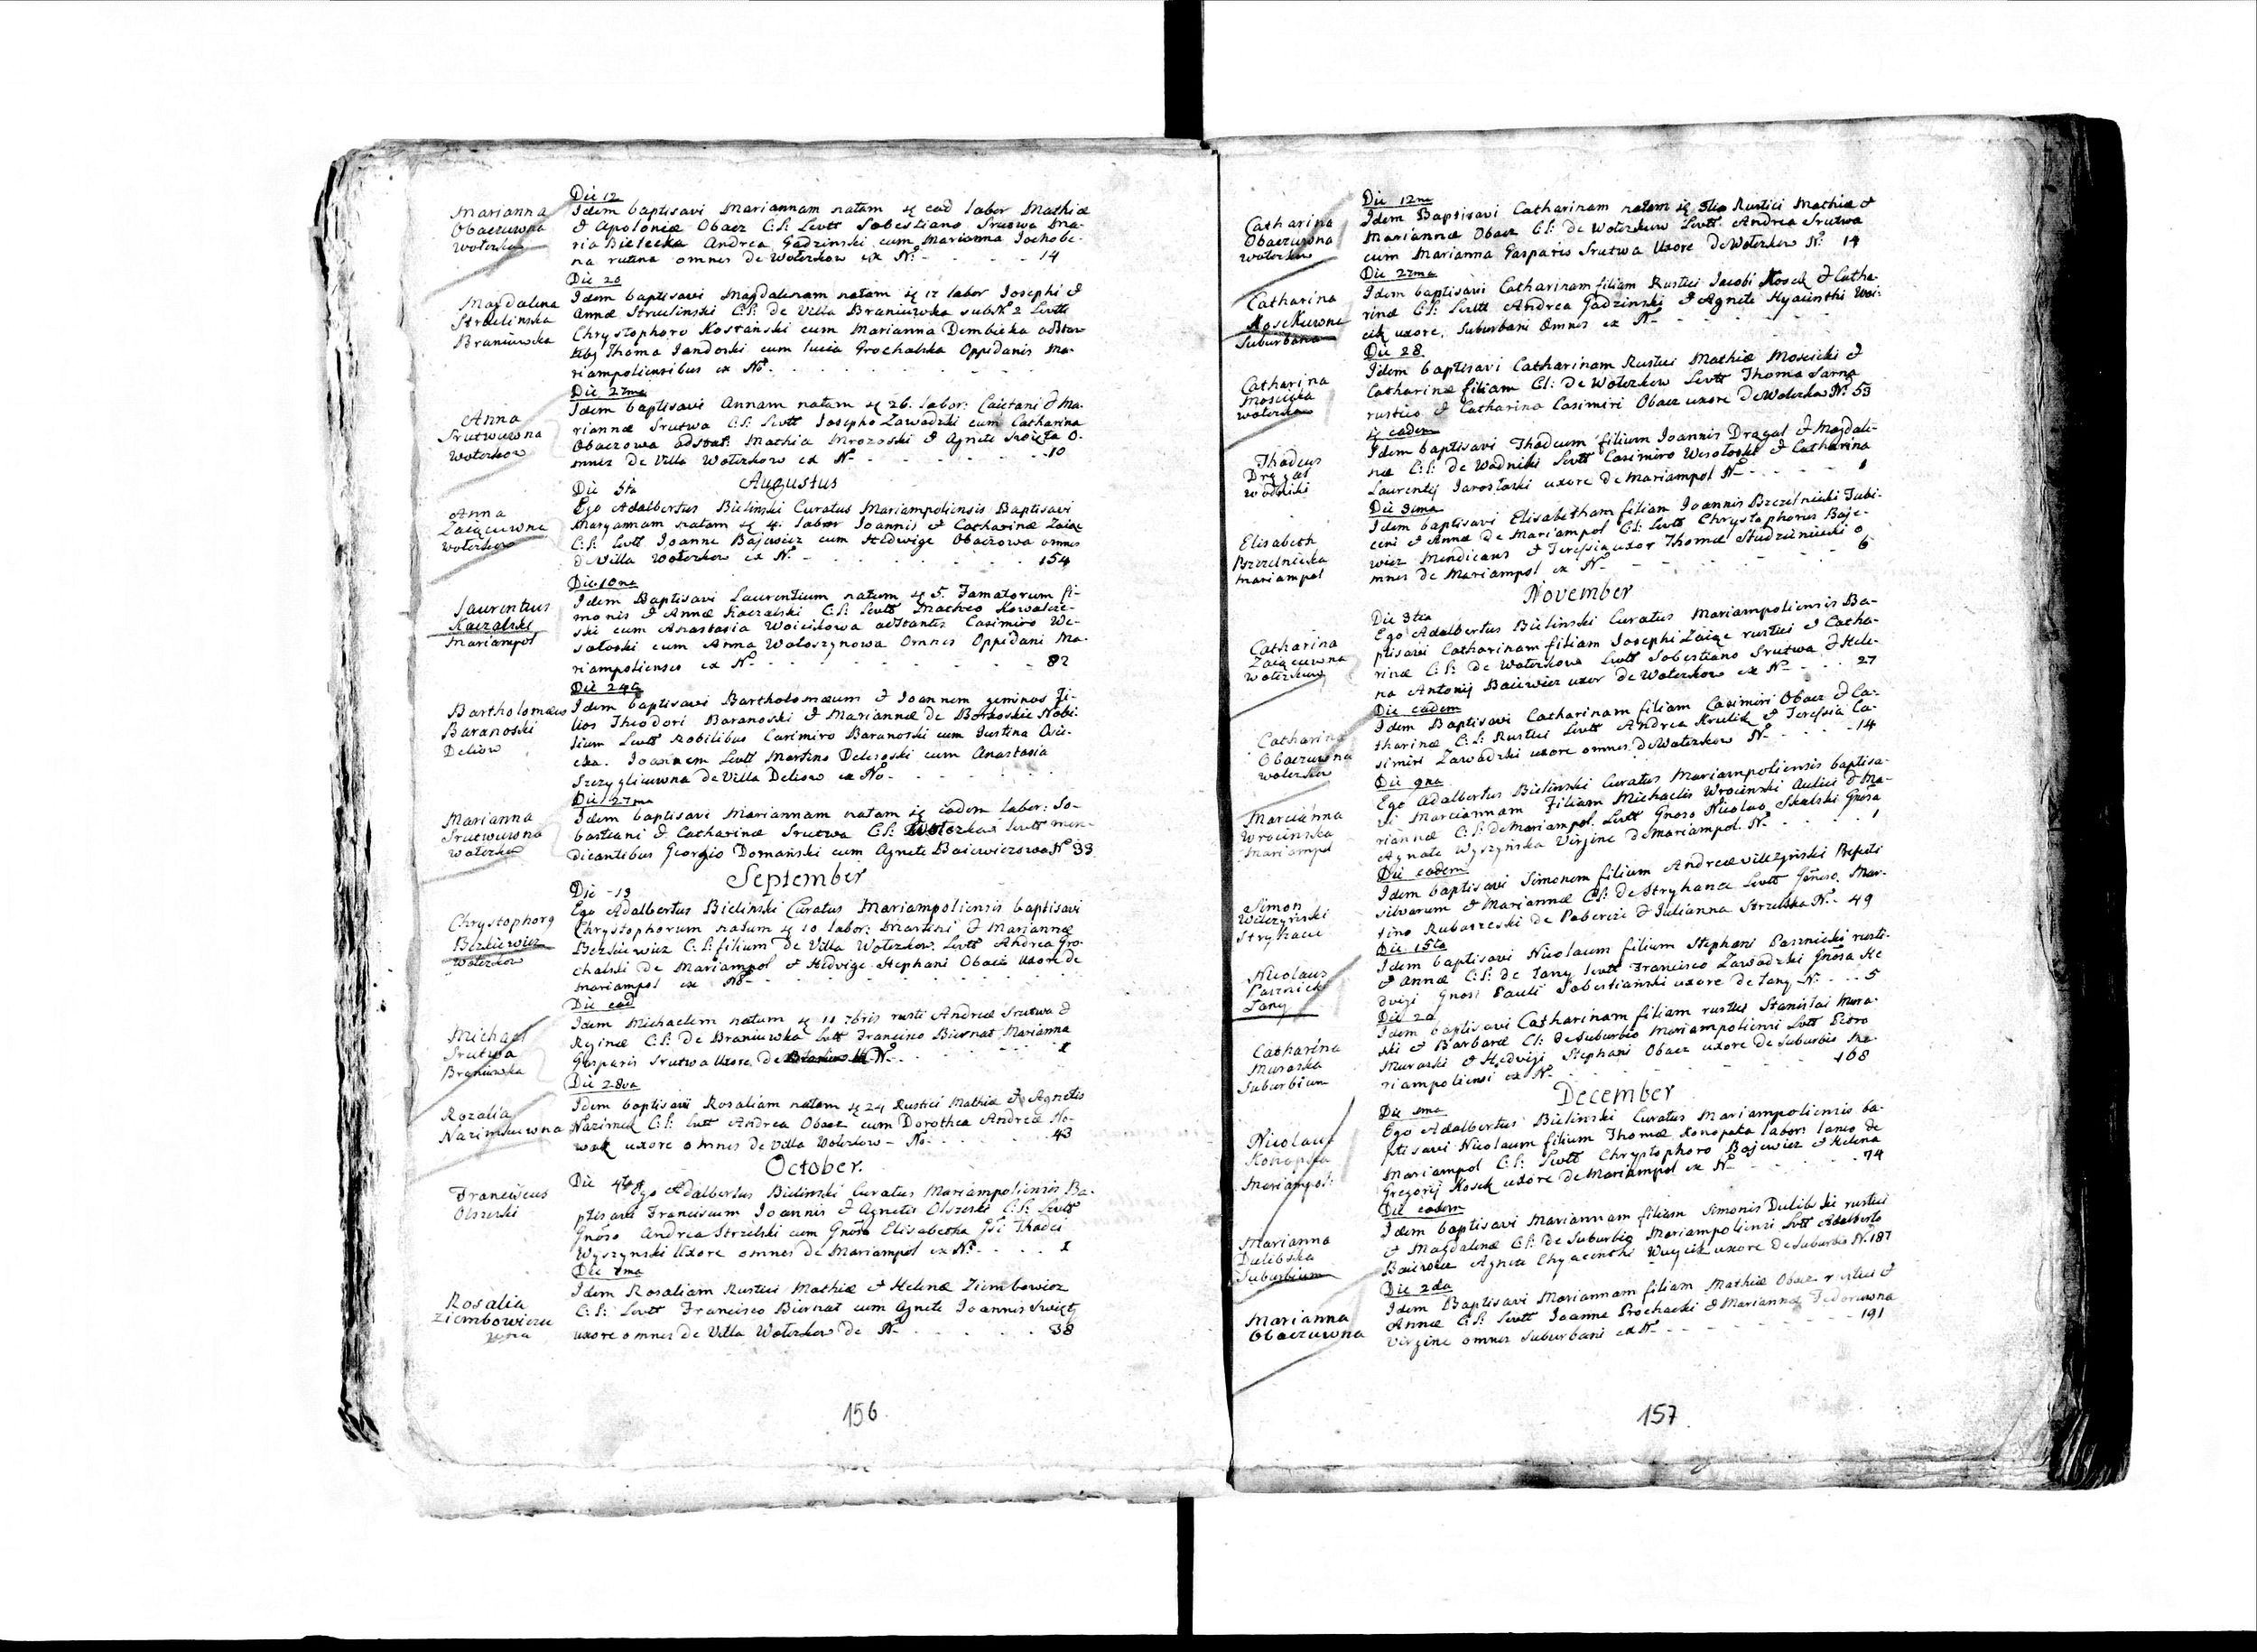 Die 12
Marianna Obaczuwna Wołczkow
Idem baptisavi Mariannam natam eę ead labor Mathiæ
& Apoloniæ Obacz C:L: Levtt Sobestiano Srutwa Ma-
ria Bielecka Andrea Gadzinski cum Marianna
na rutena omnes de Wołczkow ex No - 14
Die 20
Magdalena Strulinska Braniuwka
Idem baptisavi Magdalenam natam 17 labor Josephi &
Annæ Strulinski C:L: de Villa Braniuwka sub N 2 Levtt
Chrystophoro Kostański cum Marianna Dembicka adstan
tibq Thoma Jandoski cum Lucia Grochalska Oppidanis Ma-
riampoliensibus ex No.
Die 27ma
Anna Srutwuwna Wołczkow
Idem baptisavi Annam natam 26. labor: Caietani & Ma-
riannæ Srutwa C:L: Levtt Josepho Zawadzki cum Catharina
Obaczowa adstat: Mathia Mrozoski & Agneti Swięta O-
mnes de Villa Wołczkow ex No - 10
Augustus
Die 5ta
Anna Zaiącuwna Wołczkow
Ego Adalbertus Bielinski Curatus Mariampoliensis Baptisavi
Maryannam natam 4: labor Joannis & Catharinæ Zaiąc
C:L: Levtt Joanne Bajewicz cum Hedwige Obaczowa omnes
de Villa Wołczkow ex No - 154
Die 10ma
Laurentius Kaczalski Mariampol
Idem Baptisavi Laurentium natum 5. Famatorum Si-
monis & Annæ Kaczalski C:L: Levtt Matheo Kowalcze-
ski cum Anastasia Woicikowa adstantes Casimiro We-
sołoski cum Anna Wołoszynowa Omnes Oppidani Ma-
riampolienses ex No - 82
Die 24ta
Bartholomæus Baranoski Deliow
Idem baptisavi Bartholomæum & Joannem geminos Fi-
lios Theodori Baranoski & Mariannæ de Borkoskie Nobi-
lium Levtt Nobilibus Casimiro Baranoski cum Justina
Joannem Levtt Martino Deleroski cum Anastasia
Szczyglicuwna de Villa Deliow ex No -
Die 27ma
Marianna Srutwuwna Wołczkow
Idem baptisavi Mariannam natam eadem labor: So-
bastiani & Catharinæ Srutwa C:L: Wołczkow Levtt men-
dicantibus Georgio Domański cum Agnete Baiewiczowa No 33
September
Die - 13
Chrystophorq Berkiewicz Wołczkow
Ego Adalbertus Bielinski Curatus Mariampoliensis baptisavi
Chrystophorum natum 10 labor: Martini & Mariannæ
Berkiewicz C:L: filium de Villa Wołczkow. Levtt Andrea Gro-
chalski de Mariampol & Hedvige Stephani Obacz Uxore de
Mariampol ex No -
Die ead
Michael Srutwa Braniuwka
Idem Michaelem natum 11 7bris rusti Andreæ Srutwa &
Reginæ C:L: de Braniuwka Levtt Francisco Biernat Marianna
Gasparis Srutwa Uxore de No - 1
Die 28va
Rozalia Nazimkuwna
Idem baptisavi Rosaliam natam 24 Rustici Mathiæ & Agnetis
Nazimek C:L: Levtt Andrea Obacz cum Dorothea Andreæ No-
wak uxore omnes de Villa Wołczkow - No - 43
October.
Die 4ta
Franciscus Olszeski
Ego Adalbertus Bielinski Curatus Mariampoliensis Ba-
ptisavi Franciscum Joannis & Agnetis Olszeski C:L: Levtt
Gnoso Andrea Strzelski cum Gnosa Elisabetha Gsi Thadei
Wyszynski Uxore omnes de Mariampol ex No - 1
Die 7ma
Rosalia Ziembowiczuwna
Idem Rosaliam Rustici Mathiæ & Helenæ Ziembowicz
C:L: Levtt Francisco Biernat cum Agnete Joannis Święty
uxore omnes de Villa Wołczkow de No - 38
156
Die 12ma
Catharina Obaczuwna Wołczkow
Idem Baptisavi Catharinam natam Rustici Mathiæ &
Mariannæ Obacz C:L: de Wołczkow Levtt Andrea Srutwa
cum Marianna Gasparis Srutwa Uxore de Wołczkow No: 14
Die 27ma
Catharina Kosekuwna Suburbana
Idem baptisavi Catharinam filiam Rustici Jacobi Kosek & Catha-
rinæ C:L: Levtt Andrea Gadzinski & Agnete Hyacinthi Woi-
cik uxore. Suburbani Omnes ex No -
Die 28.
Catharina Moscicka Wołczkow
Idem baptisavi Catharinam Rustici Mathiæ Moscicki &
Catharinæ filiam C:L: de Wołczkow Levtt Thoma Sarna
rustico & Catharina Casimiri Obacz uxore de Wołczkow No: 53
eadem
Thadeus Dragal Wodniki
Idem baptisavi Thadeum filium Joannis Dragal & Magdale-
næ C:L: de Wodniki Levtt Casimiro Wesołoski & Catharina
Laurentij Jarosłaski uxore de Mariampol No - 1
Die 31ma
Elisabeth Bzczelnicka Mariampol
Idem baptisavi Elisabetham filiam Joannis Bzczelnicki Tubi-
ceni & Annæ de Mariampol C:L: Levtt Chrystophorus Baje-
wicz Mendicans & Teressia uxor Thomæ Studzienicki o
mnes de Mariampol ex No - 6
November
Die 3tia
Catharina Zaiącuwna Wołczkow
Ego Adalbertus Bielinski Curatus Mariampoliensis Ba-
ptisavi Catharinam filiam Josephi Zaiąc rustici & Catha-
rinæ C:L: de Wołczkow Levtt Sobestiano Srutwa & Hele-
na Antonij Baiewicz uxor de Wołczkow ex No - 27
Die eadem
Catharina Obaczuwna Wołczkow
Idem Baptisavi Catharinam filiam Casimiri Obacz & Ca-
tharinæ C:L: Rustici Levtt Andrea Krulik & Teressia Ca-
simiri Zawadzki uxore omnes de Wołczkow No - 14
Die 9na
Marcianna Wrocinska Mariampol
Ego Adalbertus Bielinski Curatus Mariampoliensis baptisa-
vi Marciannam Filiam Michaelis Wrocinski Aulici & Ma-
riannæ C:L: de Mariampol. Levtt Gnoso Nicolao Skalski Gnosa
Agnate Wyszyńska Virgine de Mariampol. No - 1
Die eadem
Simon Wilczyński Stryhance
Idem baptisavi Simonem filium Andreæ Wilczyński Prefecti
silvarum & Mariannæ C:L: de Stryhance Levtt Generoso Mar-
tino Rubaszeski de Pobereże & Julianna Strzelska No - 49
Die 15ta
Nicolaus Pasznicki Łany
Idem baptisavi Nicolaum filium Stephani Pasznicki rusti-
& Annæ C:L: de Łany Levtt Francisco Zawadzki Gnosa He
dvigi Gnosi Pauli Sobestiański uxore de Łany No - 5
Die 20
Catharina Muraska Suburbium
Idem baptisavi Catharinam filiam rustici Stanislai Mura-
ski & Barbaræ C:L: de Suburbio Mariampoliensi Levtt Petro
Muraski & Hedvigi Stephani Obacz uxore de Suburbio Ma-
riampoliensi ex No - 168
December
Die 1ma
Nicolaus Konopka Mariampol:
Ego Adalbertus Bielinski Curatus Mariampoliensis ba-
ptisavi Nicolaum filium Thomæ Konopka labor: Lanio de
Mariampol C:L: Levtt Chrystophoro Bajewicz & Helena
Gregorij Kosek uxore de Mariampol ex No - 74
Die eadem
Marianna Dulibska Suburbium
Idem baptisavi Mariannam filiam Simonis Dulibski rustici
& Magdalenæ C:L: de Suburbio Mariampoliensi Levtt Adalberto
Baiewicz Agneta Chyacenthi Wuycik uxore de Suburbio No. 187
Die 2da
Marianna Obaczuwna
Idem Baptisavi Mariannam filiam Mathiæ Obacz rustici &
Annæ C:L: Levtt Joanne Prochacki & Marianna Fedoruwna
Virgine omnes Suburbani ex No - 191
157